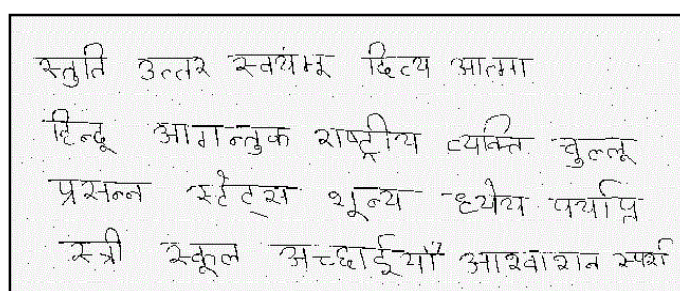 स्तुति उत्तर स्वयंभू दित्य आत्मा
हिन्दू आगन्तुक राष्ट्रीय व्यक्ति चुल्लू
प्रसन्न स्टेट्स शून्य ध्येय पर्याप्त
स्त्री स्कूल अच्छाईयाँ आश्वाशन स्पर्श